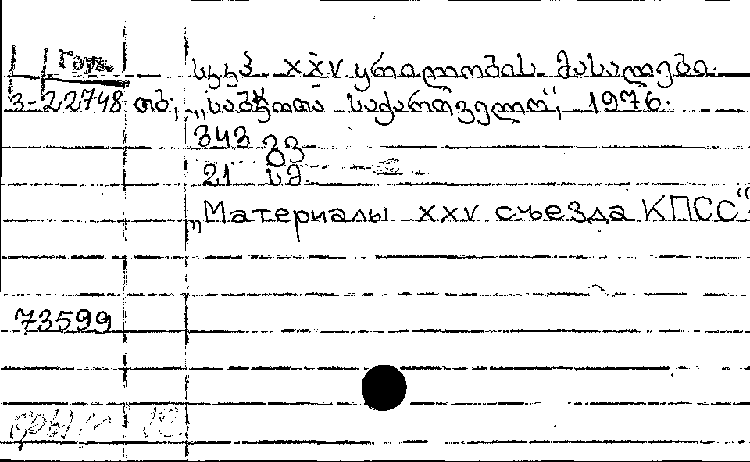 სკკპ XXV ყრილობის მასალები.
3-22748 თბ., „საბჭოთა საქართველო“, 1976.
343 გვ.
21 სმ.
„Материалы XXV съезда КПСС“
73599